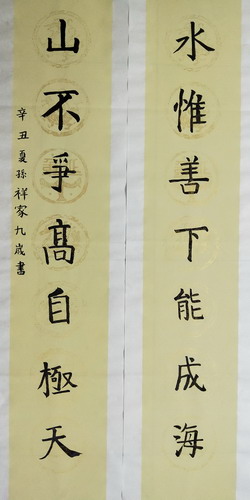 水惟善下能成海
山不爭髙自極天
辛丑夏孫祥家九歲書